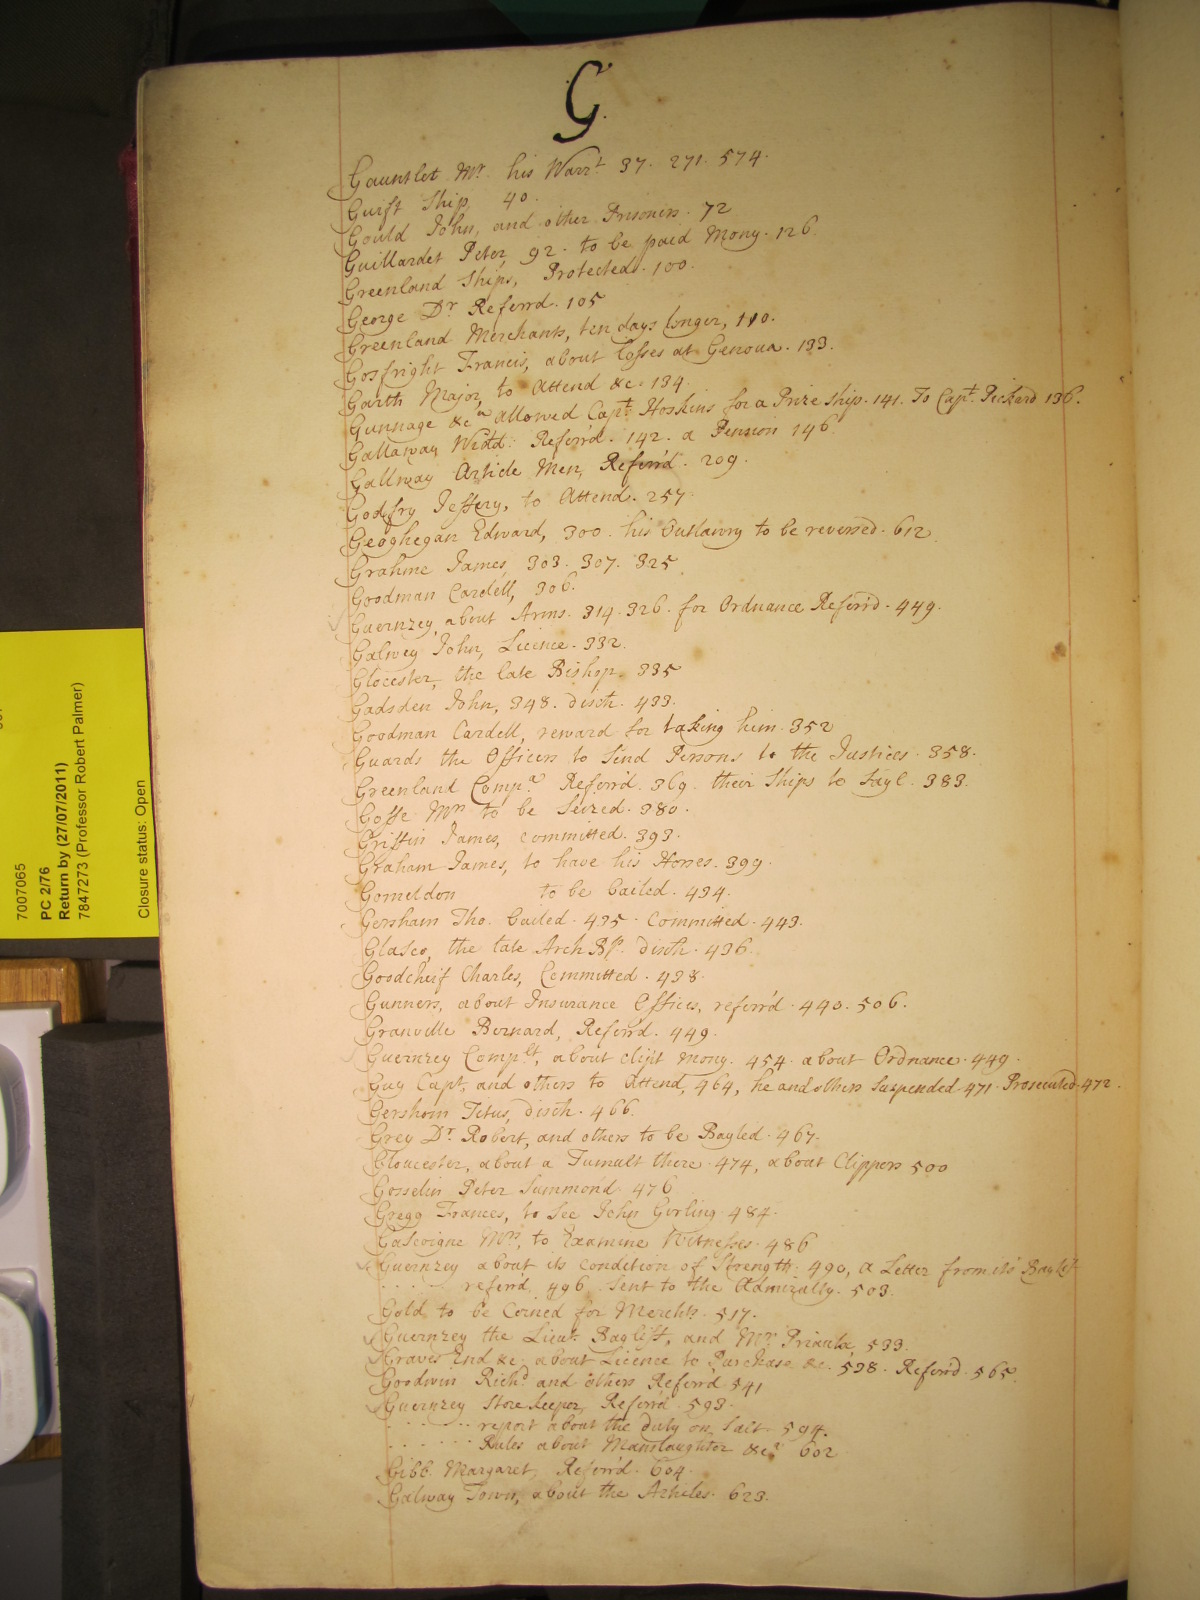 G.
Gauntlet Mr. his Warrt. 37. 271. 574.
Gurst Ship, 40.
Gould John, and other Prisoners. 72
Guillardet Peter, 92. to be paid Mony. 126.
Greenland Ships, Protected. 100.
George Dr. Referrd. 105
Greenland Merchants, ten days longer, 110.
Gosfright Francis, about losses at Genoua. 133.
Garth Major, to Attend &c. 134.
Gunnage &ca. allowed Capt. Hoskins for a Prize Ship. 141. To Capt. Pickard 136.
Gallaway Widd: Referr'd. 142. a Pension 146.
Gallway Article Men, Referr'd. 209.
Godfry Jeffery, to Attend. 257.
Geoghegan Edward, 300. his Outlawry to be reversed. 612.
Grahme James, 303. 307. 325
Goodman Cardell, 306.
Guernzey about Arms. 314. 326. for Ordnance Referr'd. 449.
Galwey John, Licence. 332.
Glocester, the late Bishop. 335
Gadsden John, 348. disch. 433.
Goodman Cardell, reward for taking him 352
Guards the Officers to Send Persons to the Justices. 358.
Greenland Compa. Referr'd. 369. their Ships to Sayl. 383.
Goffe Mr. to be Seized. 380.
Griffin James, committed. 393.
Graham James, to have his Horses. 399.
Gomeldon to be bailed. 434.
Gersham Tho. bailed. 435. Committed. 443.
Glasco, the late Arch Bp. disch. 436.
Goodcheif Charles, Committed. 438.
Gunners, about Insurance Offices, referr'd. 440. 506.
Granville Bernard, Referrd. 449.
Guernzey Complt, about clipt Mony. 454. about Ordnance. 449.
Guy Capt. and others to Attend, 464, he and others Suspended 471. Prosecuted. 472.
Gershom Titus, disch. 466.
Grey Dr. Robert, and others to be Bayled. 467.
Gloucester, about a Tumult there. 474, about Clippers 500
Gosselin Peter Summond. 476
Gregg Frances, to See John Girling. 484.
Gascoigne Mr., to Examine Witnesses. 486
Guernzey about its condition of Strength. 490, a Letter from its Baylif
. . . . . referrd. 496. Sent to the Admiralty. 503.
Gold to be Coined for Merchts. 517.
Guernzey the Lieut. Bayliff, and Mr. Priaulx, 533.
Graves End &c. about Licence to Purchase &c. 538. Referr'd. 565.
Goodwin Richd. and others Referrd 541
Guernzey Store keeper, Referr'd. 593.
. . . . . . report about the duty on Salt. 594.
. . . . . . Rules about Manslaughter &ca. 602
Gibb Margaret, Referr'd. 604.
Galway Town, about the Articles. 623.
7007065
PC 2/76
Return by (27/07/2011)
7847273 (Professor Robert Palmer)
Closure status: Open